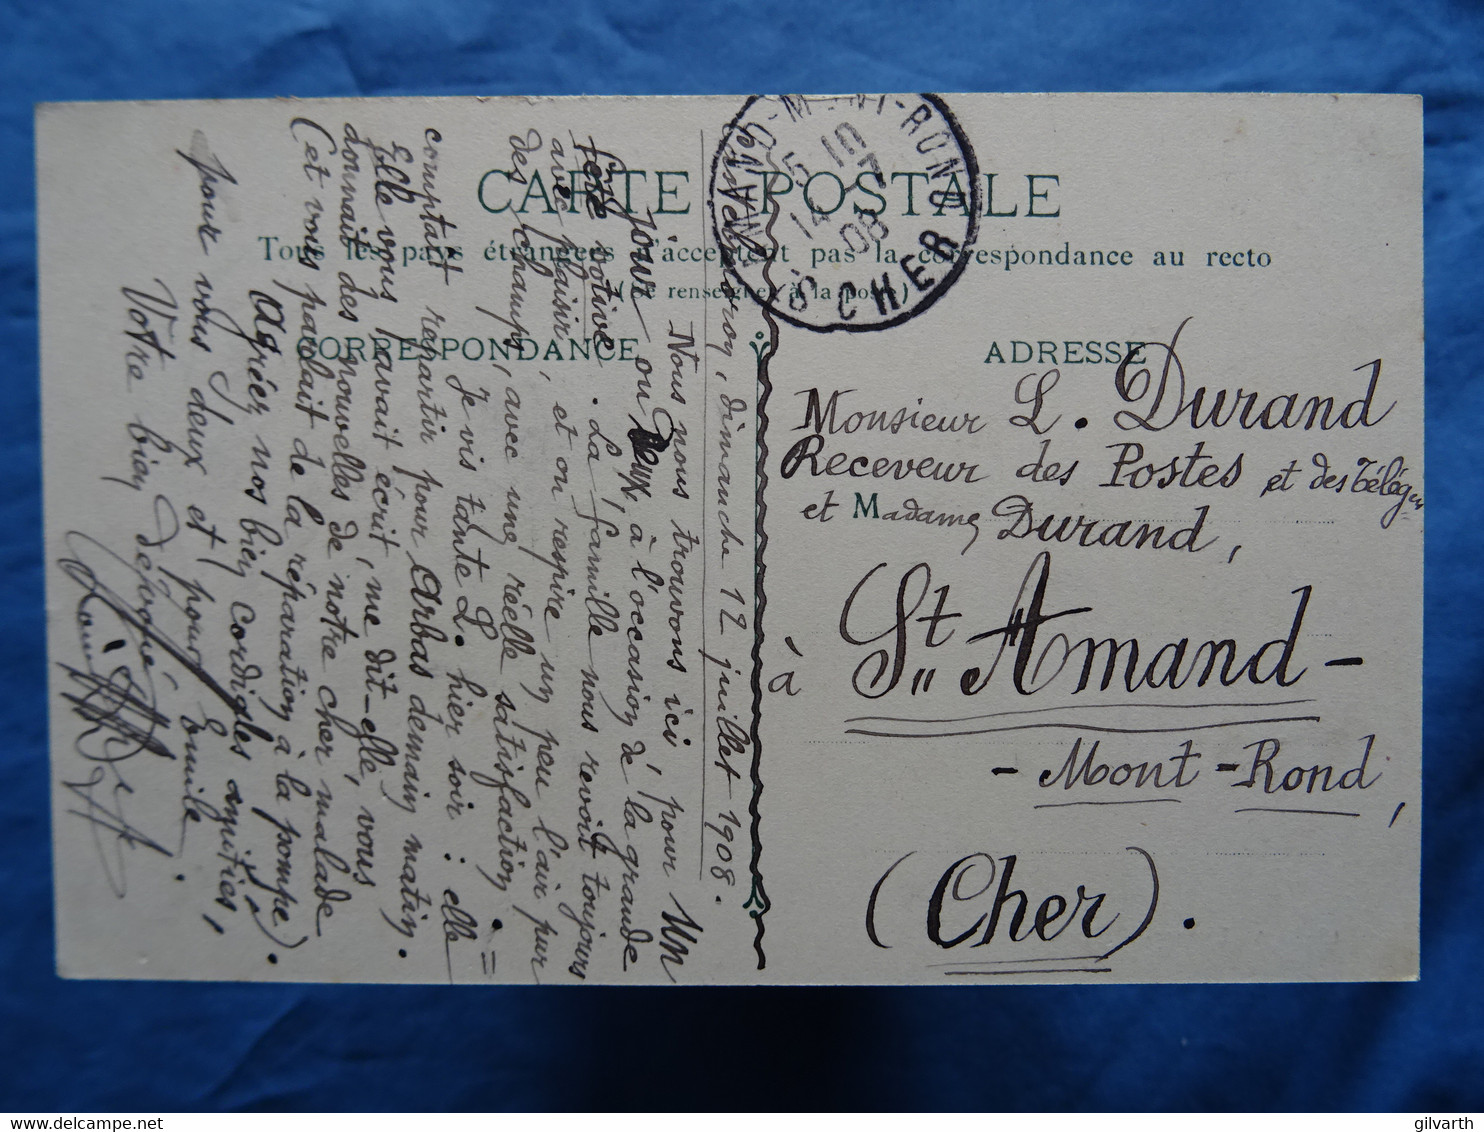 CARTE POSTALE
Tous les pays étrangers n'acceptent pas la correspondance au recto
(Se renseigner à la poste)
CORRESPONDANCE
ADRESSE
AMAND-MONT-ROND
15 10
14 7
08
CHER
dimanche 12 juillet 1908.
Nous nous trouvons ici, pour un
jour ou deux, à l'occasion de la grande
fête votive. La famille nous revoit toujours
avec plaisir, et on respire un peu l'air pur
des champs, avec une réelle satisfaction. =
Je vis tante L. hier soir : elle
comptait repartir pour Arbas demain matin.
Elle vous avait écrit, me dit-elle, vous
donnait des nouvelles de notre cher malade
(et vous parlait de la réparation à la pompe).
Agréez nos bien cordiales amitiés,
pour vous deux et pour Emile.
Votre bien dévoué
Monsieur L. Durand
Receveur des Postes et des Télég
et Madame Durand,
à St Amand-
-Mont-Rond,
(Cher).
gilvarth